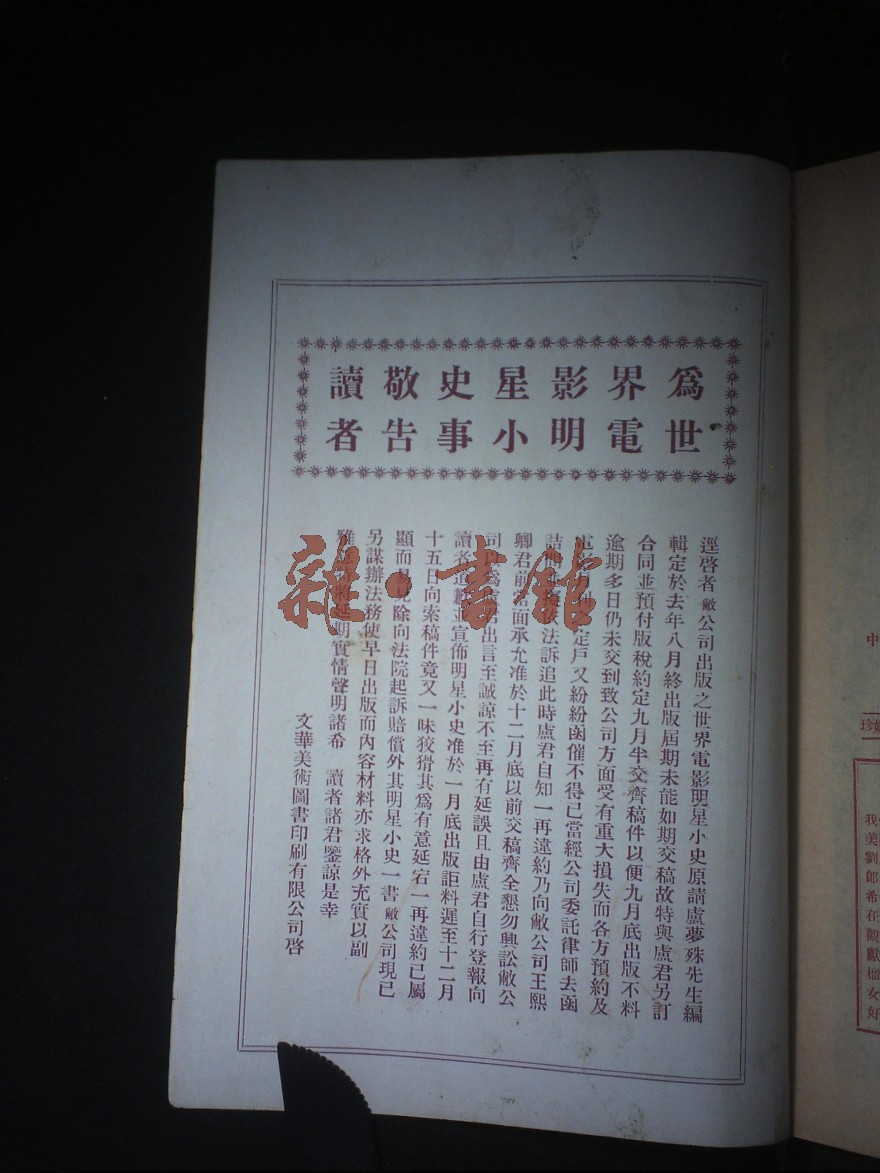 爲世界電影明星小史事敬告讀者
逕啓者敝公司出版之世界電影明星小史原請盧夢殊先生編
輯定於去年八月終出版屆期未能如期交稿故特與盧君另訂
合同並預付版稅約定九月半交齊稿件以便九月底出版不料
逾期多日仍未交到致公司方面受有重大損失而各方預約及
定戶又紛紛函催不得已當經公司委託律師去函
詰問 依法訴追此時盧君自知一再違約乃向敝公司王熙
卿君前當面承允准於十二月底以前交稿齊全懇勿興訟敝公
司 爲盧君出言至誠諒不至再有延誤且由盧君自行登報向
讀者道歉並宣佈明星小史准於一月底出版詎料遲至十二月
十五日向索稿件竟又一味狡猾其爲有意延宕一再違約已屬
顯而易見除向法院起訴賠償外其明星小史一書敝公司現已
另謀辦法務使早日出版而內容材料亦求格外充實以副
雅 將延期實情聲明諸希 讀者諸君鑒諒是幸
文華美術圖書印刷有限公司啓
雜·書館
中
珍
我美劉郎希在觀獻櫃女好